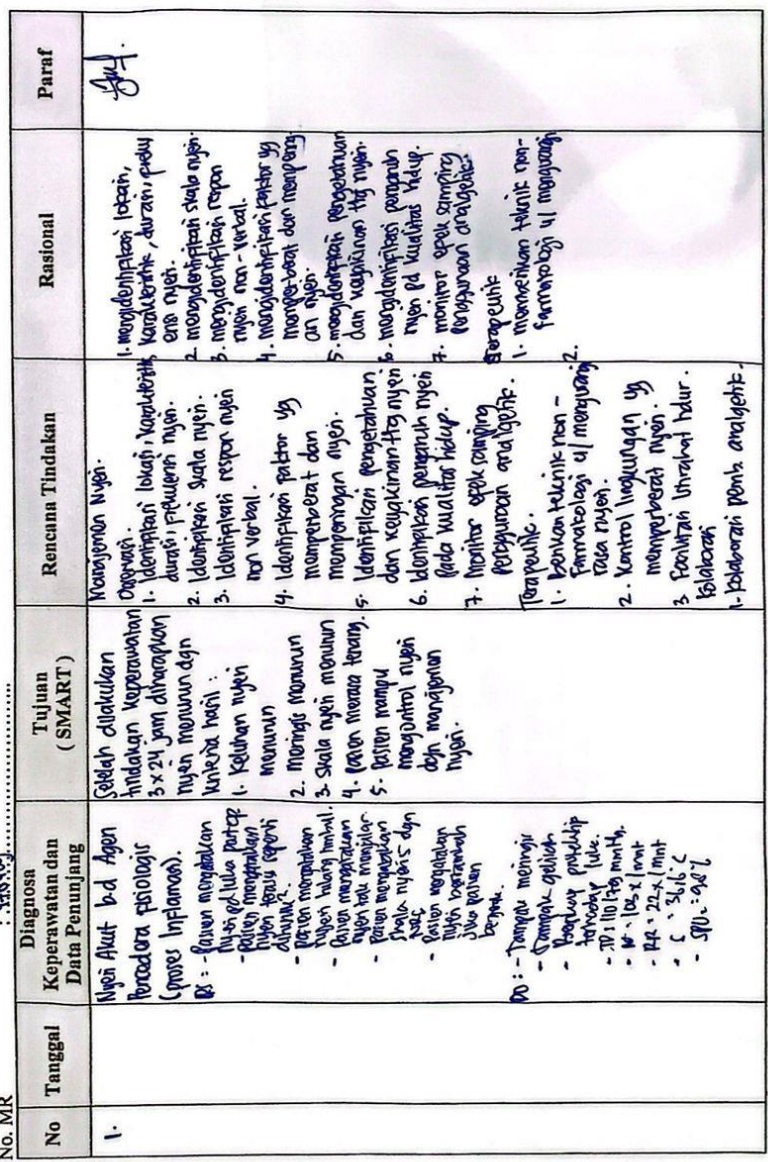 No. MR
No
Tanggal
Diagnosa
Keperawatan dan
Data Penunjang
Tujuan
( SMART )
Rencana Tindakan
Rasional
Paraf
1.
Nyeri Akut b.d Agen
Pencedera fisiologis
(proses Inflamasi).
DS : - Pasien mengatakan
nyeri pd luka post op
- Pasien mengatakan
nyeri terasa seperti
- pasien mengatakan
nyeri hilang timbul.
- Pasien mengatakan
nyeri tdk menjalar
- pasien mengatakan
skala nyeri 5 dgn
NRS
- Pasien mengatakan
nyeri bertambah
jika pasien
bergerak.
DO : - Tampak meringis
- Tampak gelisah
- Bersikap protektif
terhadap luka.
- TD : 110/79 mmHg.
- N = 103 x / mnt
- RR = 22 x / mnt
- S = 36,6 °C
- SPO2 = 98 %
Setelah dilakukan
tindakan keperawatan
3 x 24 jam diharapkan
nyeri menurun dgn
kriteria hasil :
1. Keluhan nyeri
menurun
2. Meringis menurun
3. Skala nyeri menurun
4. Pasien merasa tenang.
5. Pasien mampu
mengontrol nyeri
dgn manajemen
nyeri.
Manajemen Nyeri.
Observasi.
1. Identifikasi lokasi, karakteristik,
durasi, frekuensi nyeri.
2. Identifikasi skala nyeri.
3. Identifikasi respon nyeri
non verbal.
4. Identifikasi faktor yg
memperberat dan
memperingan nyeri.
5. Identifikasi pengetahuan
dan keyakinan ttg nyeri
6. Identifikasi pengaruh nyeri
pada kualitas hidup.
7. Monitor efek samping
penggunaan analgetik.
Terapeutik.
1. Berikan teknik non-
farmakologi u/ mengurangi
rasa nyeri.
2. Kontrol lingkungan yg
memperberat nyeri.
3. Fasilitasi istirahat tidur.
Kolaborasi
1. Kolaborasi pemb. analgetik.
1. mengidentifikasi lokasi,
karakteristik, durasi, freku
ensi nyeri.
2. mengidentifikasi skala nyeri.
3. mengidentifikasi respon
nyeri non-verbal.
4. mengidentifikasi faktor yg
memperberat dan memperring
an nyeri.
5. mengidentifikasi pengetahuan
dan keyakinan ttg nyeri.
6. mengidentifikasi pengaruh
nyeri pd kualitas hidup.
7. monitor efek samping
penggunaan analgetik.
Terapeutik
1. memberikan teknik non-
farmakologi u/ mengurangi
2.